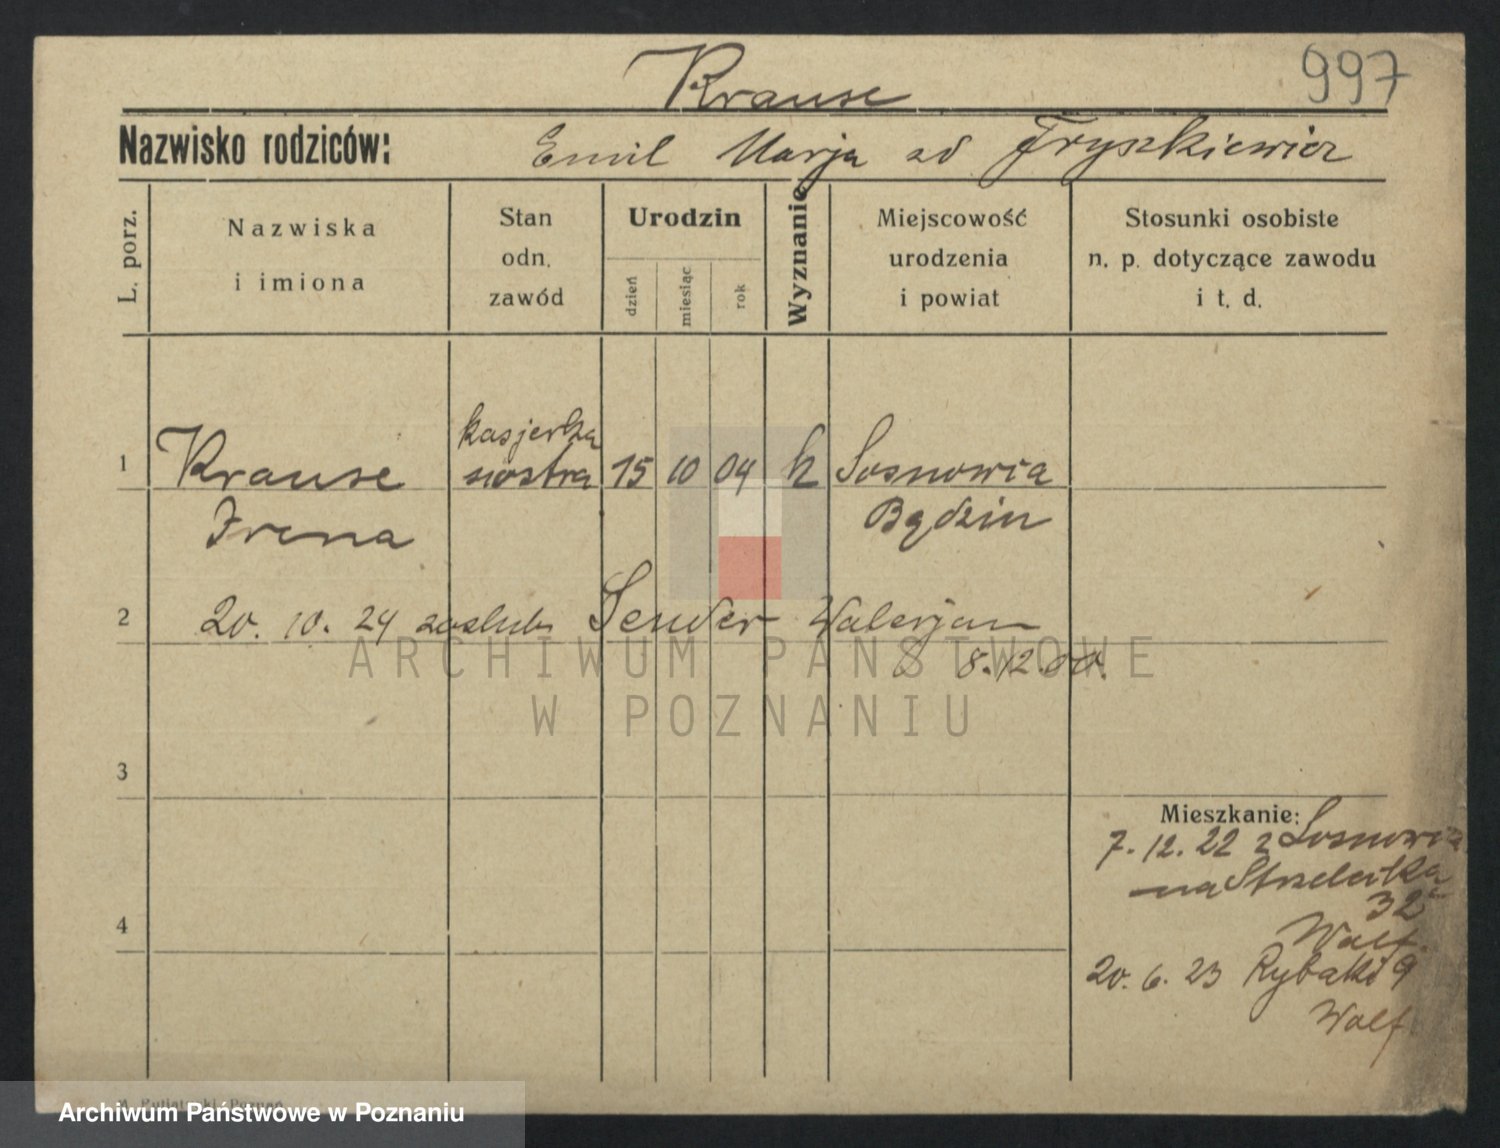 Krause
997
Nazwisko rodziców:
Emil Marja zd Fryszkiewicz
L. porz.
Nazwiska
i imiona
Stan
odn.
zawód
Urodzin
dzień
miesiąc
rok
Wyznanie
Miejscowość
urodzenia
i powiat
Stosunki osobiste
n. p. dotyczące zawodu
i t. d.
kasjerka
1 Krause siostra 15 10 04 k Sosnowia
Irena Będzin
2 20. 10. 24 zaslub Sender Walerjan
8. 12. 00.
ARCHIWUM PAŃSTWOWE
W POZNANIU
3
Mieszkanie:
7. 12. 22 z Sosnowia
na Strzelecka
32
Walf.
4
20. 6. 23 Rybaki 9
Walf
Poznań
Archiwum Państwowe w Poznaniu